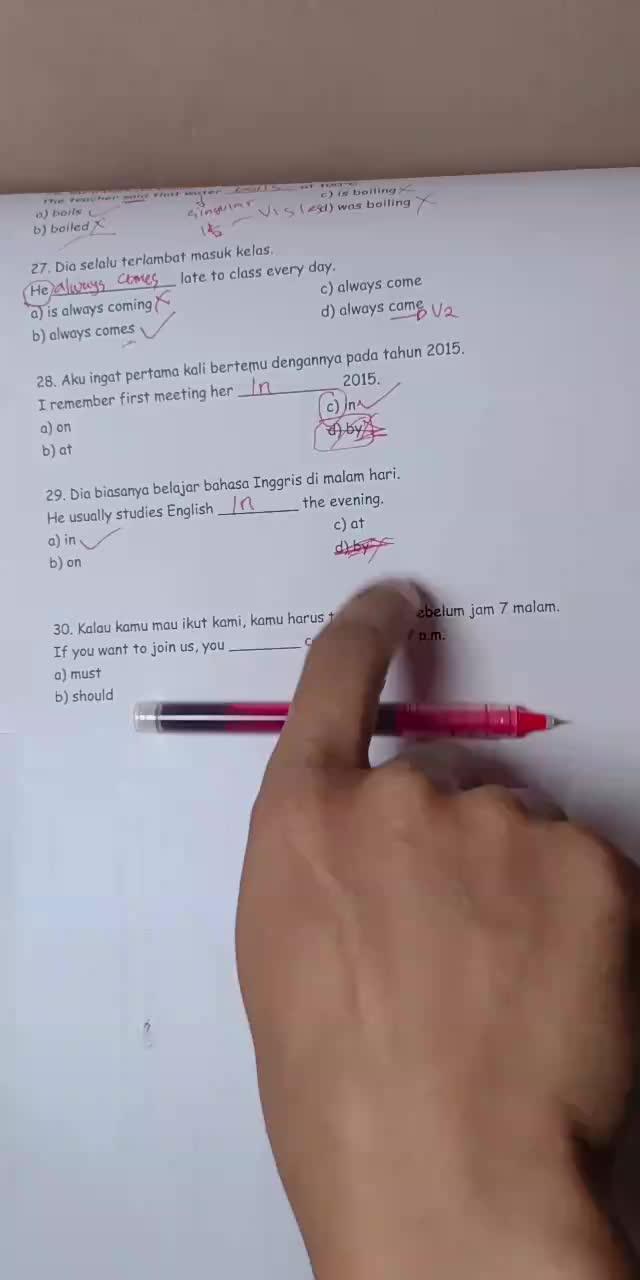 The teacher said that water boils at
a) boils
c) is boiling
singular
V1 s/es
d) was boiling
b) boiled
27. Dia selalu terlambat masuk kelas.
He always comes late to class every day.
a) is always coming
c) always come
b) always comes
d) always came V2
28. Aku ingat pertama kali bertemu dengannya pada tahun 2015.
I remember first meeting her In 2015.
a) on
c) in
b) at
d) by
29. Dia biasanya belajar bahasa Inggris di malam hari.
He usually studies English In the evening.
a) in
c) at
b) on
d) by
30. Kalau kamu mau ikut kami, kamu harus sebelum jam 7 malam.
If you want to join us, you p.m.
a) must
b) should